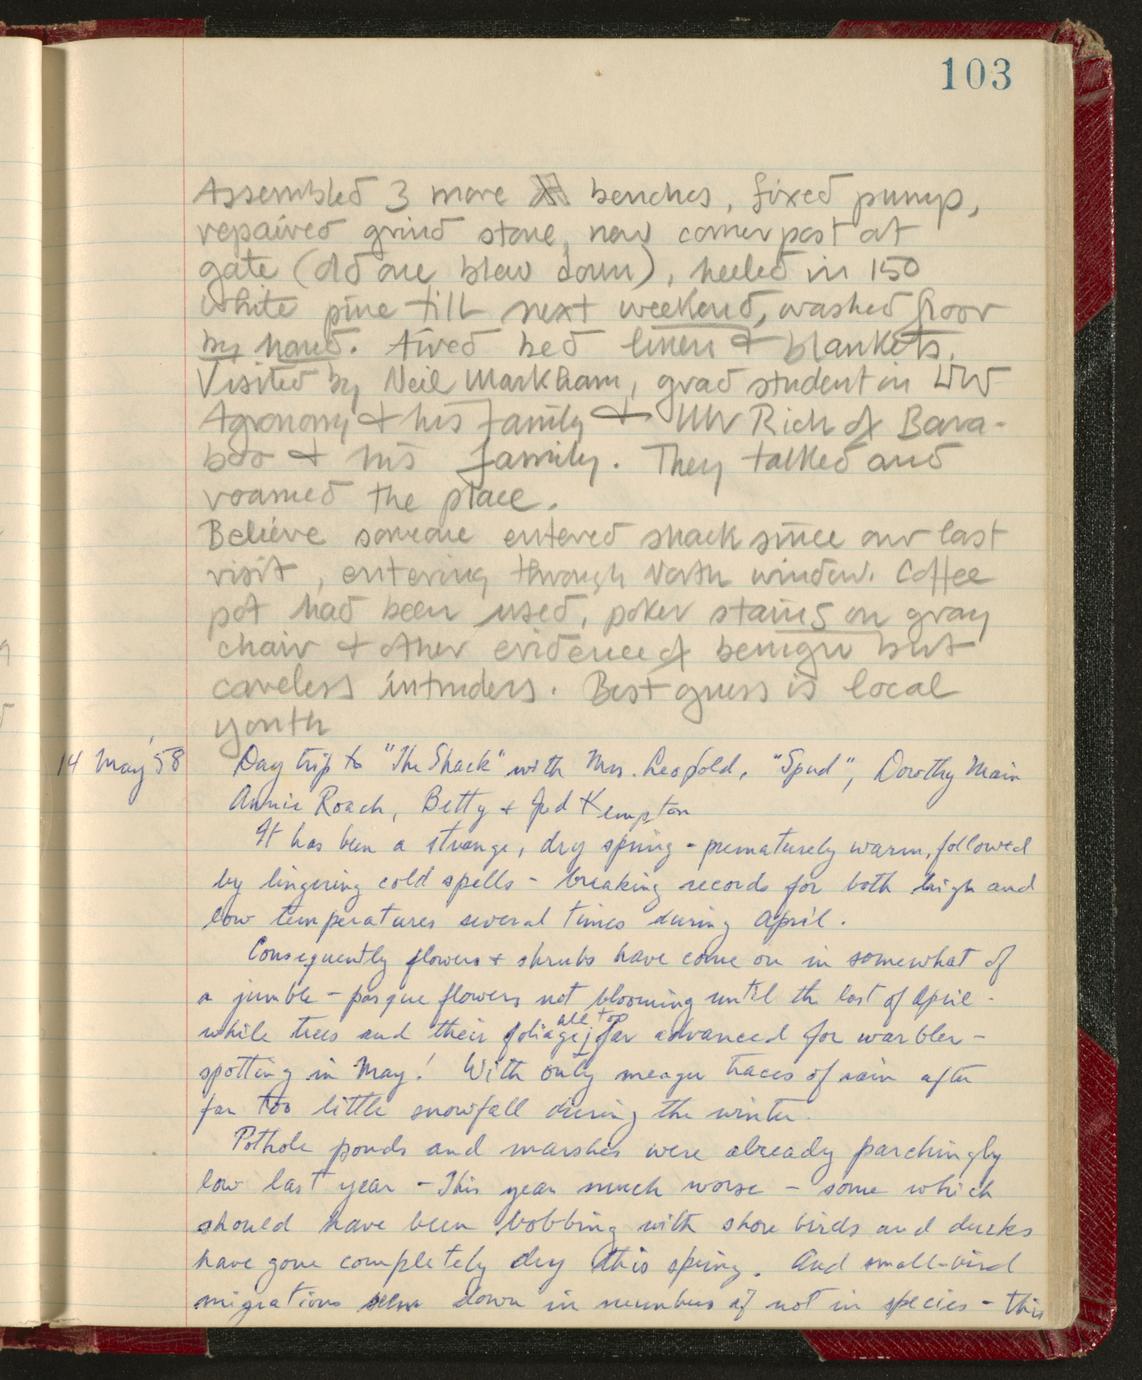 103
Assembled 3 more benches, fixed pump,
repaired grind stone, new corner post at
gate (old one blew down), heeled in 150
white pine till next weekend, washed floor
by hand. Aired bed linen & blankets.
Visited by Neil Markham, grad student in UW
Agronomy & his family & Rich of Bara-
boo & his family. They talked and
roamed the place.
Believe someone entered shack since our last
visit, entering through North window. Coffee
pot had been used, poker stains on gray
chair & other evidence of benign but
careless intruders. Best guess is local
youth
14 May '58 Day trip to "The Shack" with Mrs. Leopold, "Spud", Dorothy Main
Annie Roach, Betty & Jud Kempton
It has been a strange, dry spring - prematurely warm, followed
by lingering cold spells - breaking records for both high and
low temperatures several times during April.
Consequently flowers & shrubs have come on in somewhat of
a jumble - pasque flowers not blooming until the last of April -
while trees and their foliage all too far advanced for warbler-
spotting in May! With only meager traces of rain after
far too little snowfall during the winter.
Pothole ponds and marshes were already parchingly
low last year - This year much worse - some which
should have been bobbing with shore birds and ducks
have gone completely dry this spring. And small-bird
migrations seem down in numbers if not in species - this